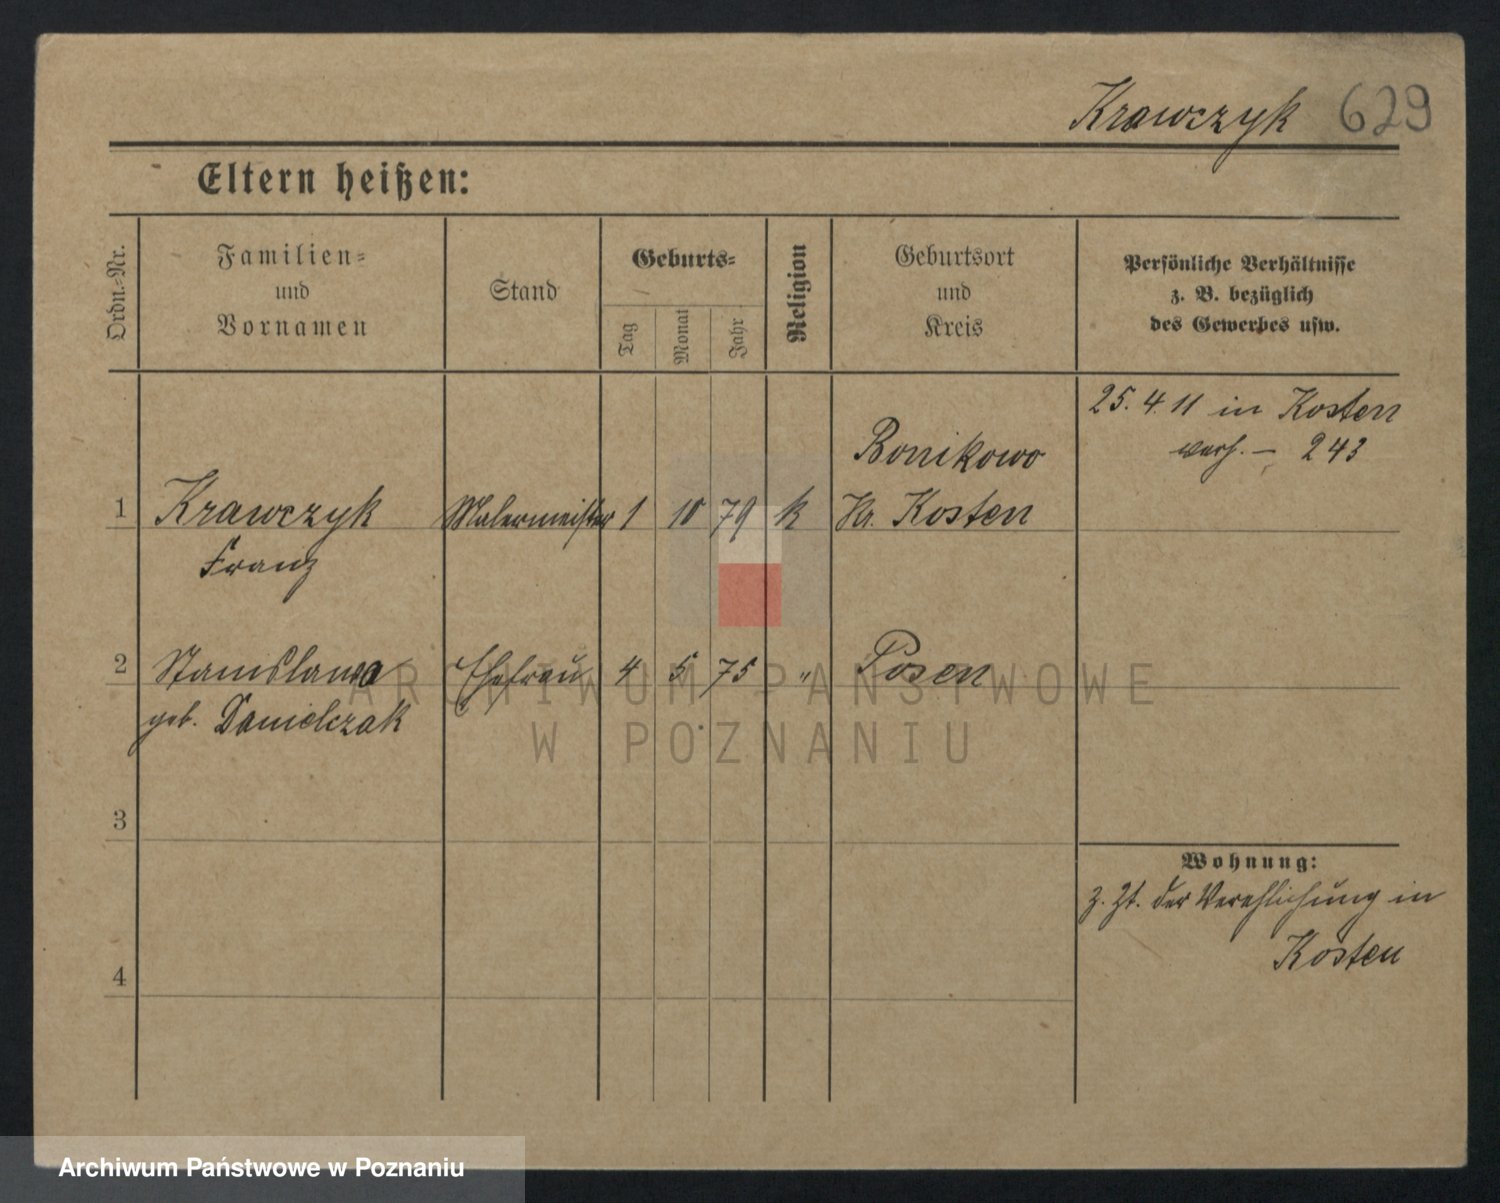 Krawczyk 629
Eltern heißen:
Ordn.-Nr.
Familien-
und
Vornamen
Stand
Geburts-
Tag
Monat
Jahr
Religion
Geburtsort
und
Kreis
Persönliche Verhältnisse
z. B. bezüglich
des Gewerbes usw.
25. 4 11 in Kosten
verh. – 243
Bonikowo
1 Krawczyk Malermeister 1 10 79 k Kr. Kosten
Franz
2 Stanislawa Ehefrau 4 5 75 " Posen
geb. Danielczak
ARCHIWUM PAŃSTWOWE
W POZNANIU
3
Wohnung:
z. Zt. der Verehlichung in
Kosten
4
Archiwum Państwowe w Poznaniu